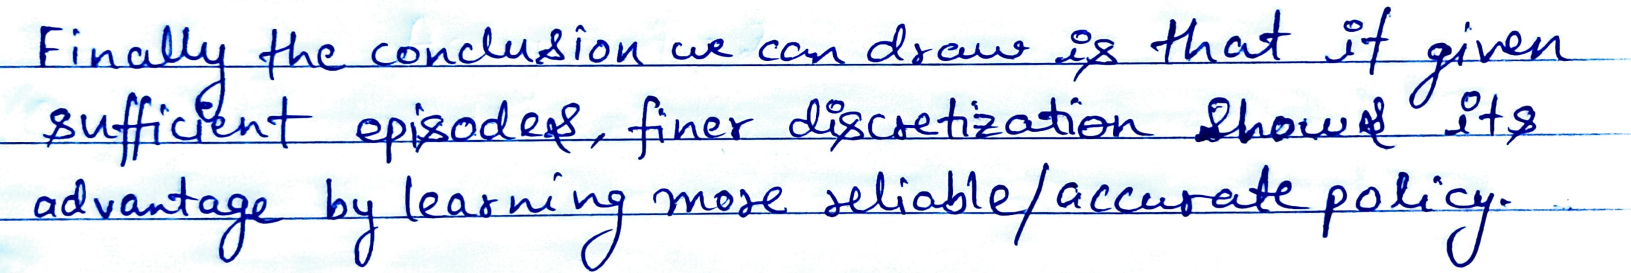 Finally the conclusion we can draw is that if given
sufficient episodes, finer discretization shows its
advantage by learning more reliable/accurate policy.